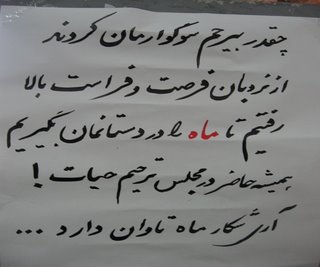 چقدر بیرحم سوگوارمان کردند
از نردبان فرصت و فراست بالا
رفتیم تا ماه را در دستانمان بگیریم
همیشه حاضر در مجلس ترحیم حیات !
آری شکار ماه تاوان دارد ...